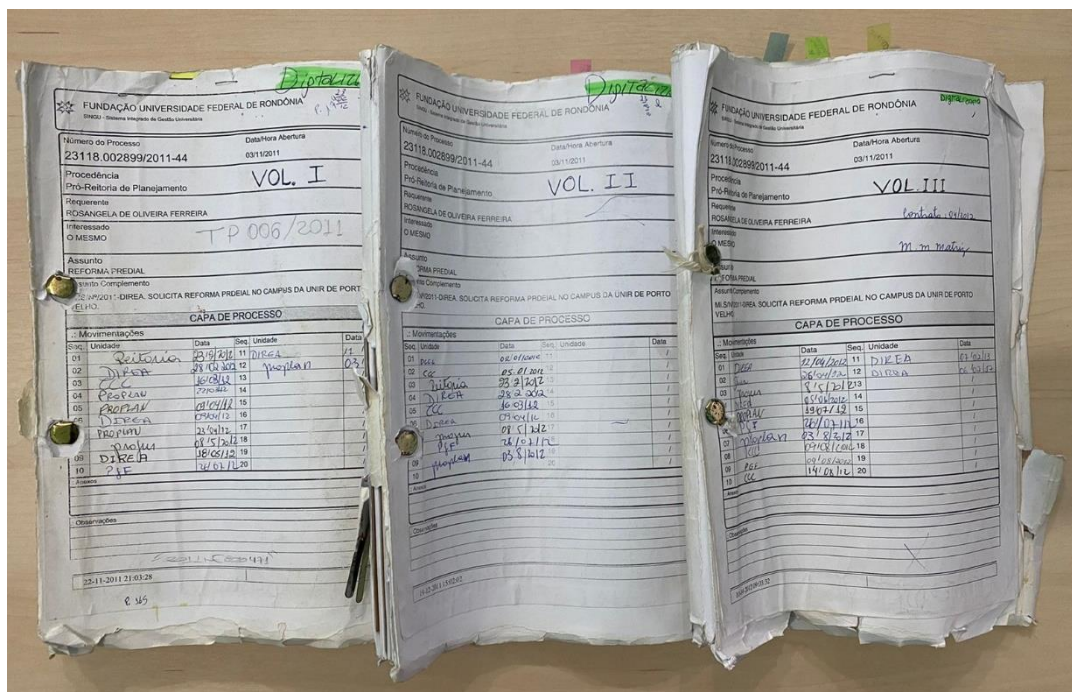 Digitaliz
FUNDAÇÃO UNIVERSIDADE FEDERAL DE RONDÔNIA
SINGU - Sistema Integrado de Gestão Universitária
Número do Processo
Data/Hora Abertura
23118.002899/2011-44
03/11/2011
Procedência
VOL. I
Pró-Reitoria de Planejamento
Requerente
ROSANGELA DE OLIVEIRA FERREIRA
Interessado
TP 006/2011
O MESMO
Assunto
REFORMA PREDIAL
Assunto Complemento
2011-DIREA. SOLICITA REFORMA PRDEIAL NO CAMPUS DA UNIR DE PORTO
VELHO.
CAPA DE PROCESSO
.: Movimentações
Seq. Unidade Data Seq. Unidade Data
01 Reitoria 11 DIREA
02 DIREA 12 proplan
03 CCC 16/03/12 13
04 PROPLAN 14
05 PROPLAN 09/04/12 15
DIREA 09/04/12 16
PROPLAN 23/04/12 17
projur 08/5/2012 18
09 DIREA 18/05/12 19
10 PGF 20
Anexos
Observações
22-11-2011 21:03:28
Digitaliz
FUNDAÇÃO UNIVERSIDADE FEDERAL DE RONDÔNIA
Número do Processo
Data/Hora Abertura
23118.002899/2011-44
03/11/2011
Procedência
VOL. II
Pró-Reitoria de Planejamento
Requerente
ROSANGELA DE OLIVEIRA FERREIRA
Interessado
O MESMO
Assunto
REFORMA PREDIAL
Assunto Complemento
2011-DIREA. SOLICITA REFORMA PRDEIAL NO CAMPUS DA UNIR DE PORTO
VELHO.
CAPA DE PROCESSO
.: Movimentações
Seq. Unidade Data Seq. Unidade Data
01 11
02 CCC 12
03 Reitoria 23.2/2012 13
04 DIREA 28.2.2012 14
05 CCC 16/03/12 15
DIREA 09/04/12 16
projur 08/5/2012 17
PGF 18
09 proplan 03/8/2012 19
10 20
Anexos
Observações
Digitalizado
FUNDAÇÃO UNIVERSIDADE FEDERAL DE RONDÔNIA
SINGU - Sistema Integrado de Gestão Universitária
Número do Processo
Data/Hora Abertura
23118.002899/2011-44
03/11/2011
Procedência
VOL. III
Pró-Reitoria de Planejamento
Requerente
ROSANGELA DE OLIVEIRA FERREIRA
Contrato: 09/2012
Interessado
O MESMO
M. m
Assunto
REFORMA PREDIAL
Assunto Complemento
2011-DIREA. SOLICITA REFORMA PRDEIAL NO CAMPUS DA UNIR DE PORTO
VELHO
CAPA DE PROCESSO
.: Movimentações
Seq. Unidade Data Seq. Unidade Data
01 DIREA 12/04/2012 11 DIREA
02 12 DIREA
03 projur 8/5/2012 13
14
PROPLAN 19/07/12 15
PGF 16
07 proplan 03/8/2012 17
08 CCC 18
09 PGF 09/08/2012 19
10 CCC 14/08/12 20
Anexos
Observações